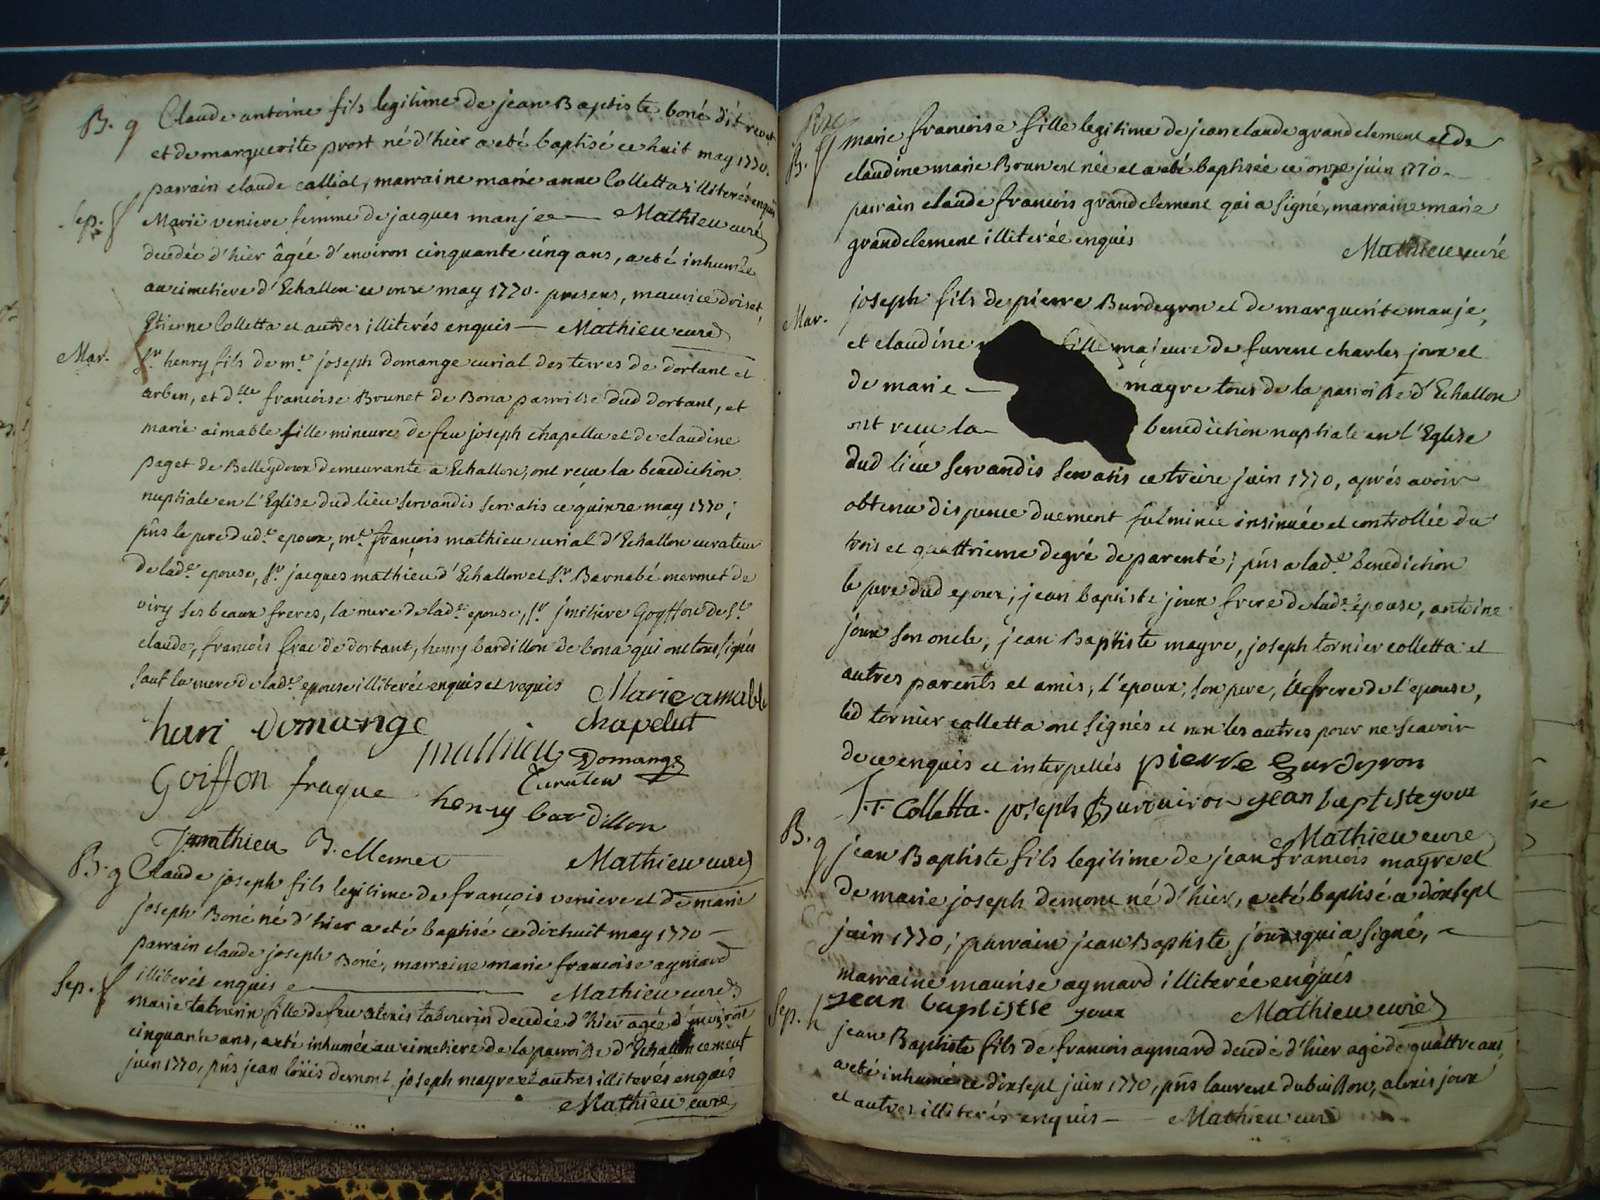 B. g Claude antoine fils legitime de jean Baptiste boné dit
et de marguerite prost né d'hier a eté baptisé ce huit may 1770.
parrain claude calliat, marraine marie anne Colletta illiterés enquis
Sep. f Marie veniere femme de jacques manjee — Mathieu curé
decedée d'hier âgée d'environ cinquante cinq ans, a eté inhumée
au cimetiere d'Echallon ce onze may 1770. presens, maurice doiset,
Etienne Colletta et autres illiterés enquis — Mathieu curé
Mar. Sr. henry fils de me. joseph domange curial des terres de dortant et
arben, et dlle. francoise Brunet de Bona parroisse dud dortant, et
marie aimable fille mineure de feu joseph chapellu et de claudine
paget de Belleydoux demeurante a Echallon, ont recu la benediction
nuptiale en l'Eglise dud lieu servandis servatis ce quinze may 1770;
pns le pere dud. epoux, me. françois mathieu curial d'Echallon curateur
de lade. epouse, Sr. jacques mathieu d'Echallon et Sr. Barnabé mermet de
viry ses beaux freres, la mere de lade. epouse, Sr. Goyffon de St.
claude, francois frac de dortant, henry bardillon de bona qui ont tous signés
sauf la mere de lade. epouse illiterée enquise et requis Marie amabl
hari domange chapelut
mathieu Domange
Goiffon fraque Curateur
henry bardillon
J mathieu B. Mermet Mathieu curé
B. g Claude joseph fils legitime de françois veniere et de marie
joseph Boné né d'hier a eté baptisé ce dixhuit may 1770 —
parrain claude joseph Boné, marraine marie francoise aymard
illiterés enquis — Mathieu curé
Sep. f marie tabourin fille de feu alexis tabourin decedée d'hier agée d'environ
cinquante ans, a eté inhumée au cimetiere de la parroisse d'Echallon ce neuf
juin 1770, pns jean louis demont joseph mayre et autres illiterés enquis
Mathieu curé
B. f marie francoise fille legitime de jean claude grandclement et de
claudine marie Brun est née et a eté baptisée ce onze juin 1770 —
parrain claude francois grandclement qui a signé, marraine marie
grandclement illiterée enquis
Mathieu curé
Mar. joseph fils de pierre Burdeyron et de marguerite manje,
et claudine fille majeure de furent charles joux et
de marie — mayre tous de la parroisse d'Echallon
ont recu la — benediction nuptiale en l'Eglise
dud lieu servandis servatis ce treize juin 1770, aprés avoir
obtenu dispence duement fulminée insinuée et controllée du
trois et quattrieme degré de parenté; pns a lade. benediction
le pere dud epoux, jean baptiste joux frere de lade. epouse, antoine
joux son oncle, jean Baptiste mayre, joseph tornier colletta et
autres parents et amis, l'epoux, son pere, le frere de l'epouse,
led tornier colletta ont signés et non les autres pour ne scavoir
de ce enquis et interpellés pierre Burdeyron
J.T. Colletta. joseph Burdeiron jean baptiste joux
Mathieu curé
B. g jean Baptiste fils legitime de jean francois mayre et
de marie joseph demont né d'hier, a eté baptisé ce dixsept
juin 1770; parrain jean Baptiste joux qui a signé, —
marraine maurise aymard illiterée enquis
jean baptistse joux Mathieu curé
Sep. f jean Baptiste fils de francois aymard decedé d'hier agé de quattre ans
a eté inhumé ce dixsept juin 1770, pns laurent dubuisson, alexis joux
et autres illiterés enquis — Mathieu curé